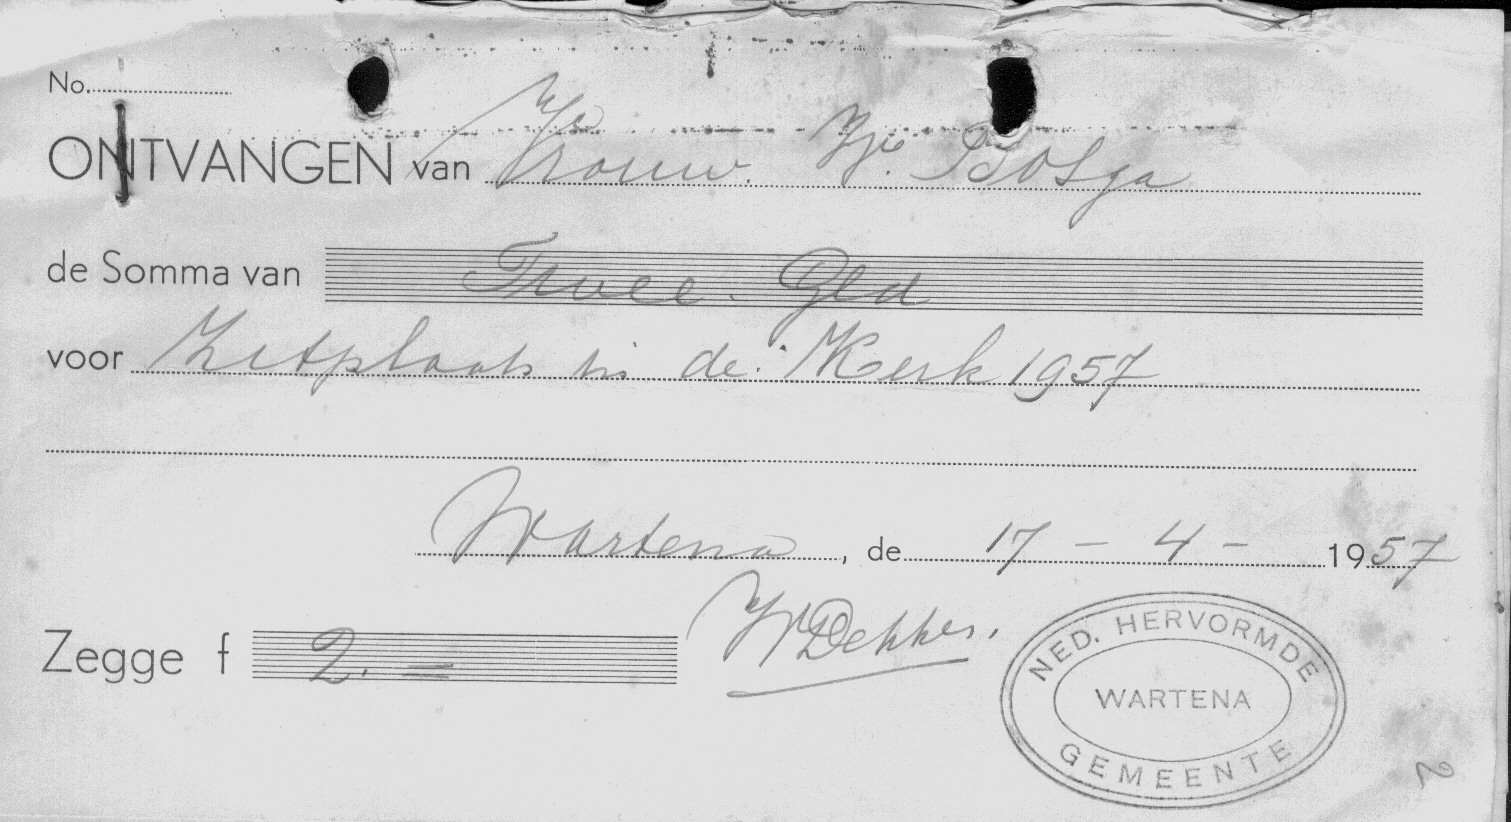 No.
ONTVANGEN van Vrouw. IJ. Bosga
de Somma van Twee. Gld
voor Zitplaats in de. Kerk 1957
Wartena, de 17 - 4 - 1957
Zegge f 2. =
Dekker.
NED. HERVORMDE
WARTENA
GEMEENTE